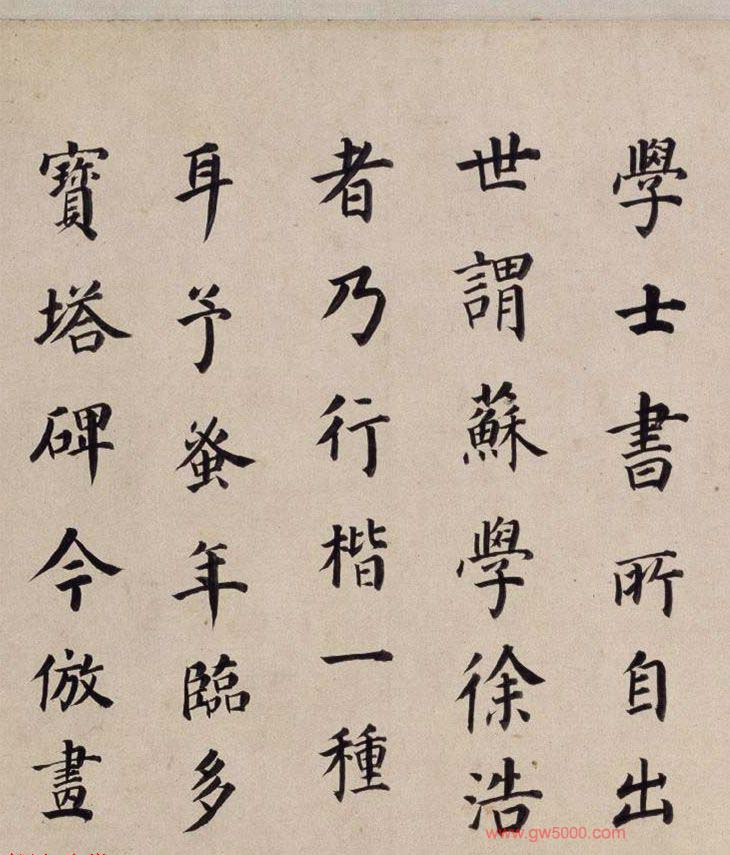 學士書所自出
世謂蘇學徐浩
者乃行楷一種
耳予蚤年臨多
寶塔碑今倣畫
www.gw5000.com